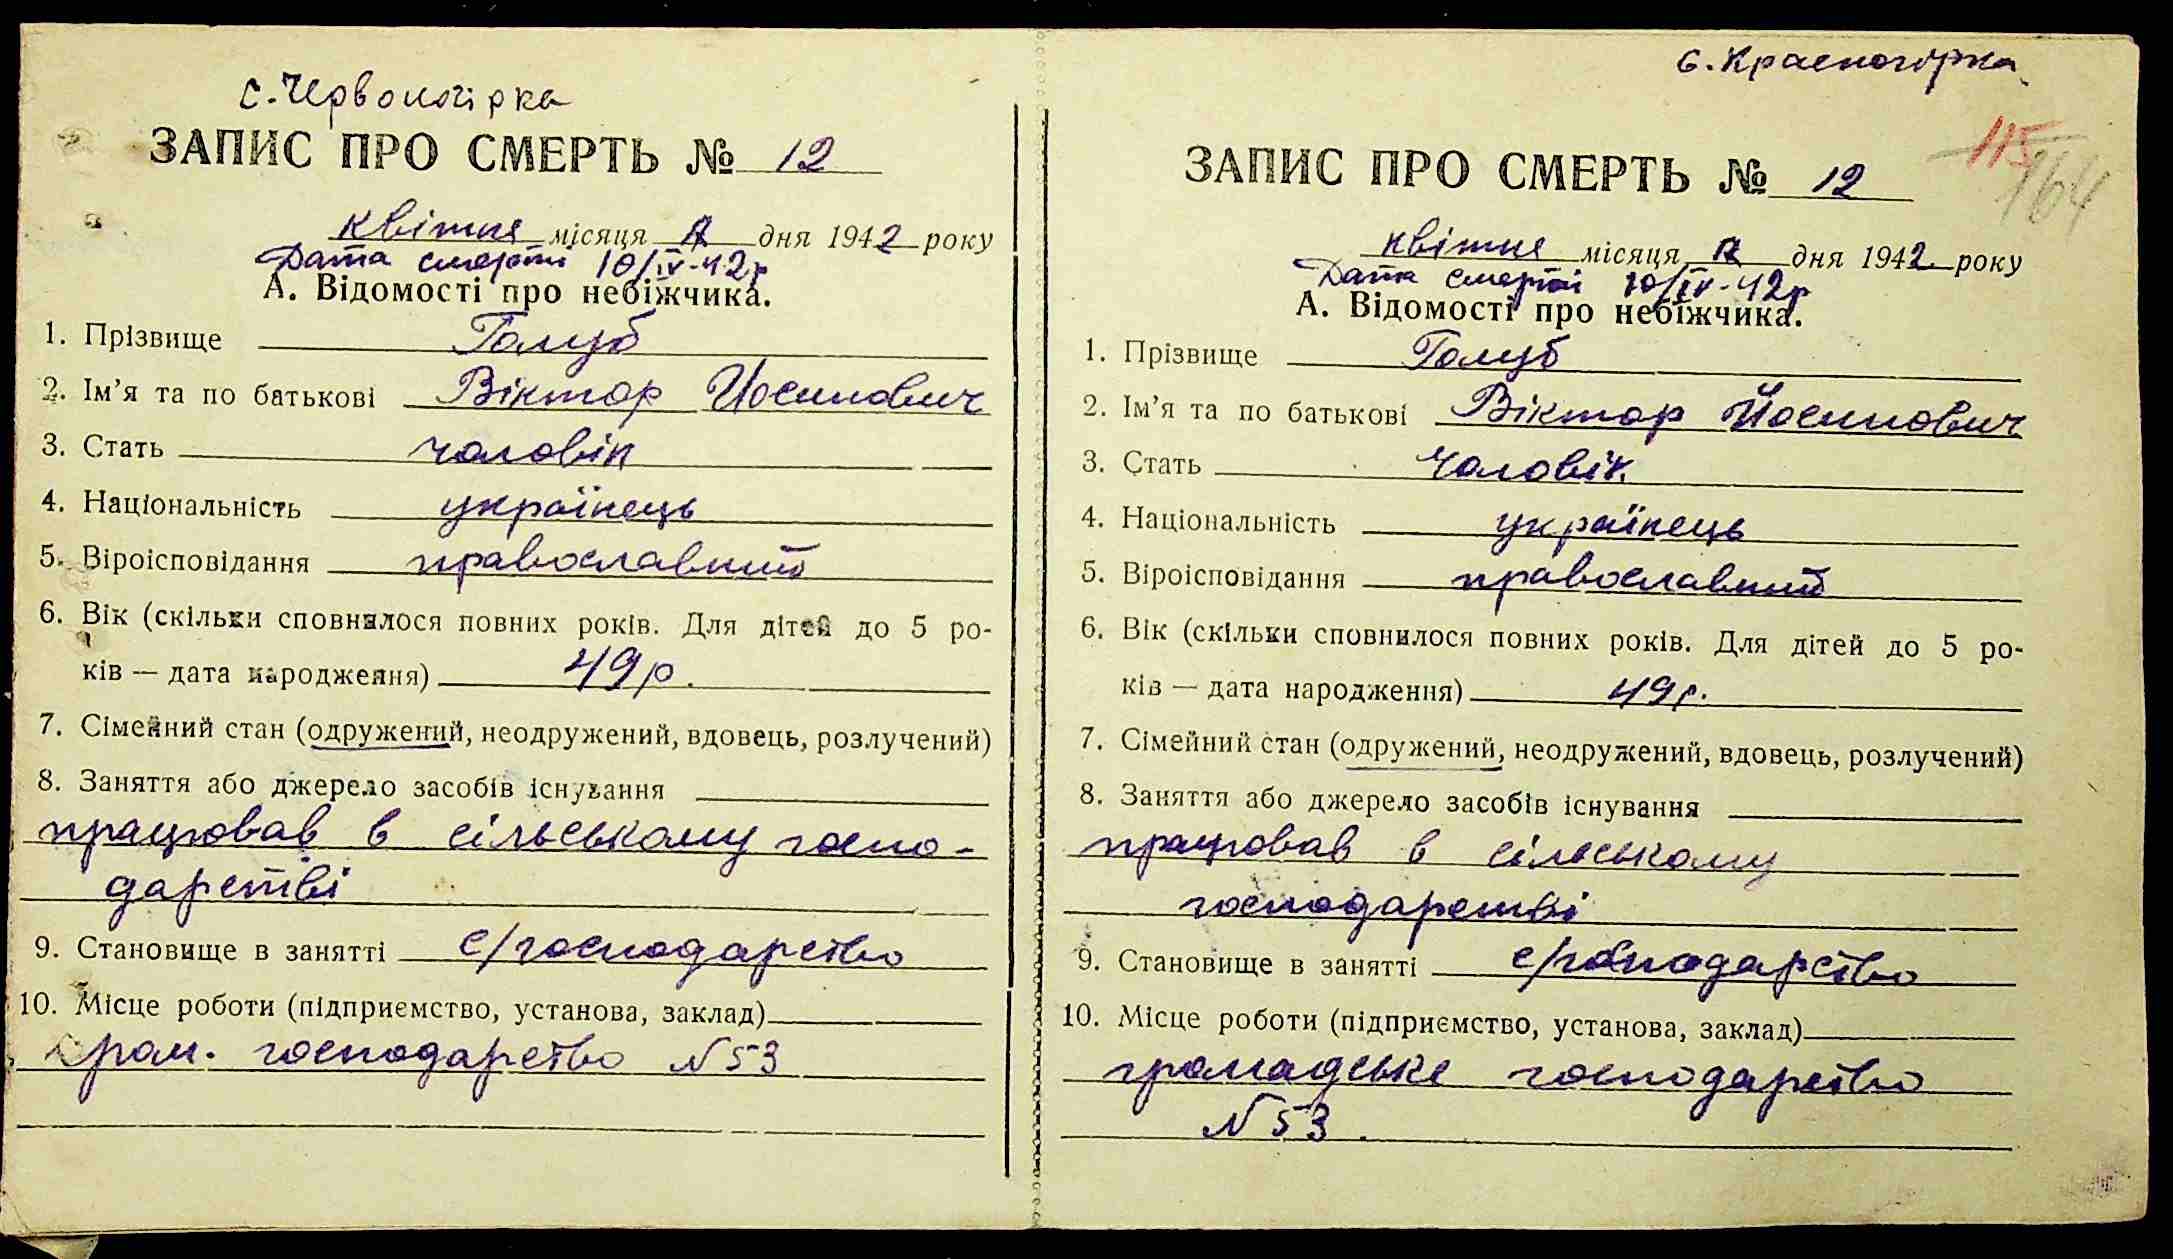 с. Червоногірка
ЗАПИС ПРО СМЕРТЬ № 12
квітня місяця дня 1942 року
Дата смерті 10/IV-42р
А. Відомості про небіжчика.
1. Прізвище Голуб
2. Ім'я та по батькові Віктор Йосипович
3. Стать чоловік
4. Національність українець
5. Віроісповідання православний
6. Вік (скільки сповнилося повних років. Для дітей до 5 ро-
ків — дата народження) 49 р.
7. Сімейний стан (одружений, неодружений, вдовець, розлучений)
8. Заняття або джерело засобів існування
працював в сільському госпо-
дарстві
9. Становище в занятті с/господарство
10. Місце роботи (підприємство, установа, заклад)
гром. господарство N 53
с. Красногірка
115
164
ЗАПИС ПРО СМЕРТЬ № 12
квітня місяця дня 1942 року
Дата смерті 10/IV-42р
А. Відомості про небіжчика.
1. Прізвище Голуб
2. Ім'я та по батькові Віктор Йосипович
3. Стать чоловік.
4. Національність українець
5. Віроісповідання православний
6. Вік (скільки сповнилося повних років. Для дітей до 5 ро-
ків — дата народження) 49 р.
7. Сімейний стан (одружений, неодружений, вдовець, розлучений)
8. Заняття або джерело засобів існування
працював в сільському
господарстві
9. Становище в занятті с/господарство
10. Місце роботи (підприємство, установа, заклад)
громадське господарство
N 53.